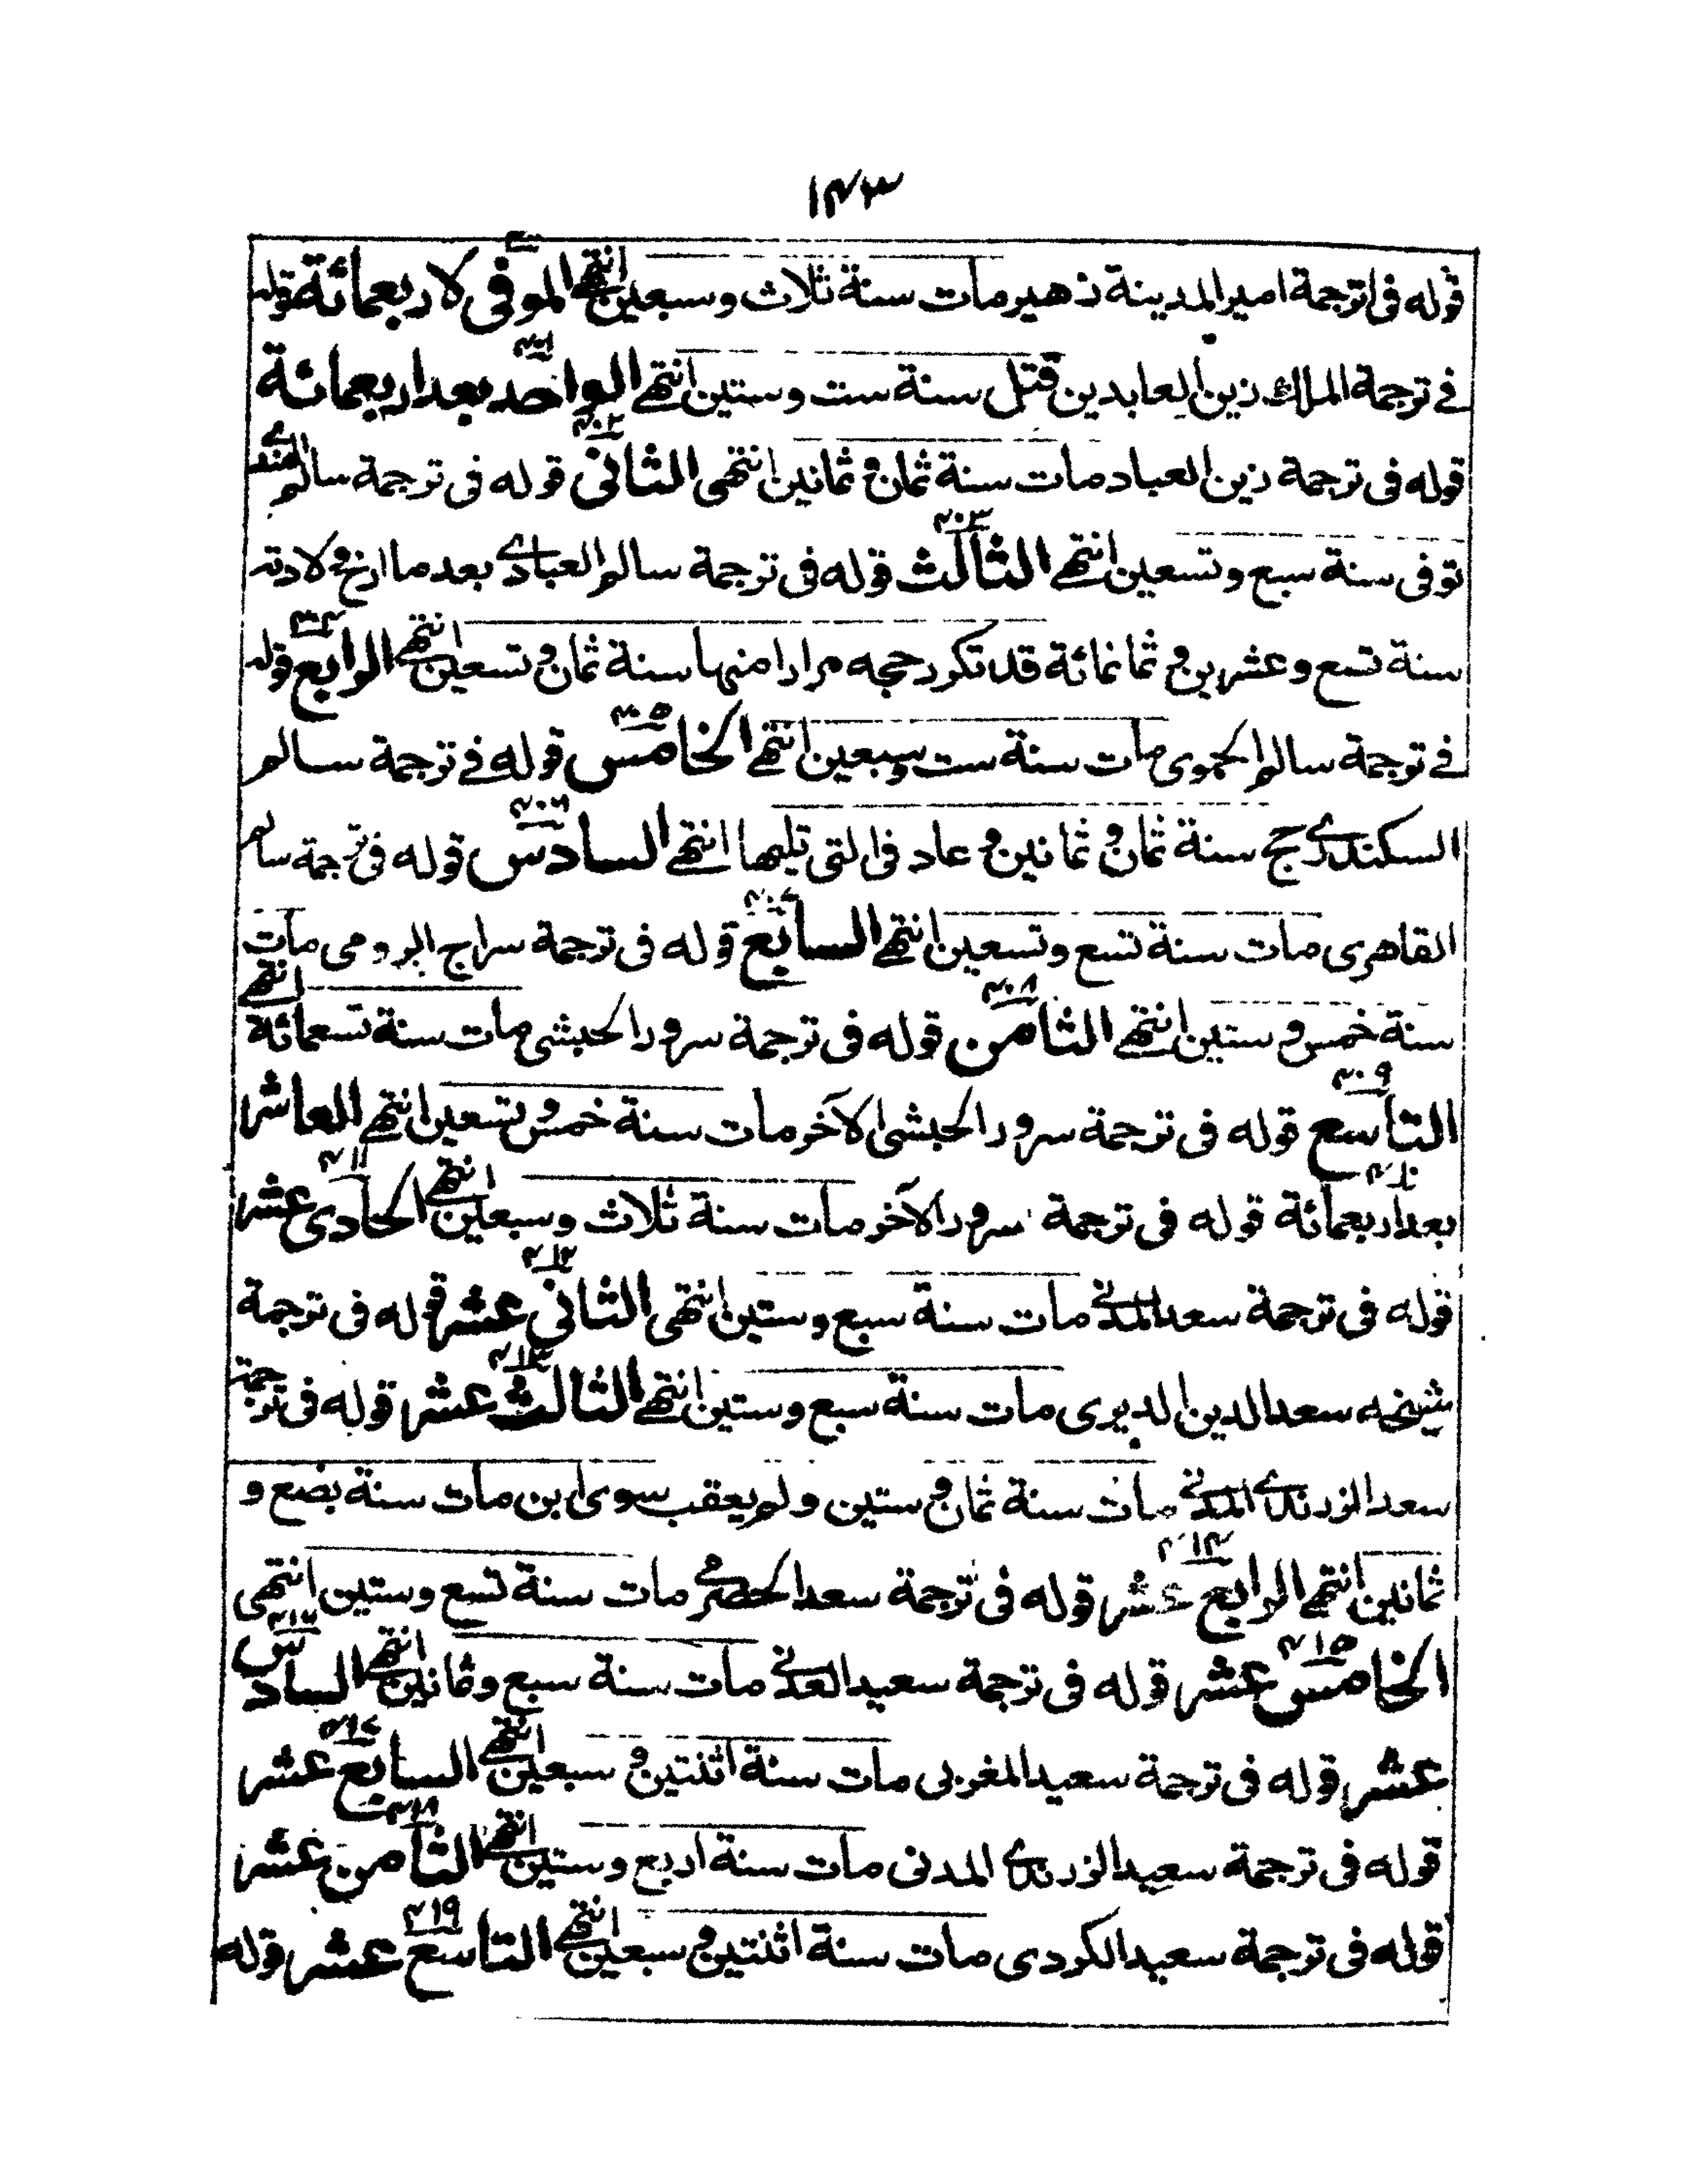 ١٤٣
قوله فى ترجمة امير المدينة زهير مات سنة ثلاث وسبعين انتهى الموفى لاربعمائة قوله
فى ترجمة الملك زين العابدين قتل سنة ست وستين انتهى الواحد بعد اربعمائة
قوله فى ترجمة زين العباد مات سنة ثمان وثمانين انتهى الثانى قوله فى ترجمة سالم الهندى
توفى سنة سبع وتسعين انتهى الثالث قوله فى ترجمة سالم العبادى بعد ما ارخ ولادته
سنة تسع وعشرين وثمانمائة قد تكرر حجه مرارا منها سنة ثمان وتسعين انتهى الرابع قوله
فى ترجمة سالم الحموى مات سنة ست وسبعين انتهى الخامس قوله فى ترجمة سالم
السكندرى حج سنة ثمان وثمانين وعاد فى التى تليها انتهى السادس قوله فى ترجمة سالم
القاهرى مات سنة تسع وتسعين انتهى السابع قوله فى ترجمة سراج الرومى مات
سنة خمس وستين انتهى الثامن قوله فى ترجمة سرور الحبشى مات سنة تسعمائة انتهى
التاسع قوله فى ترجمة سرور الحبشى الآخر مات سنة خمس وتسعين انتهى العاشر
بعد اربعمائة قوله فى ترجمة سرور الآخر مات سنة ثلاث وسبعين انتهى الحادى عشر
قوله فى ترجمة سعد المدنى مات سنة سبع وستين انتهى الثانى عشر قوله فى ترجمة
شيخه سعد الدين الديرى مات سنة سبع وستين انتهى الثالث عشر قوله فى ترجمة
سعد الزرندى المدنى مات سنة ثمان وستين ولم يعقب سوى ابن مات سنة بضع و
ثمانين انتهى الرابع عشر قوله فى ترجمة سعد الحضرمى مات سنة تسع وستين انتهى
الخامس عشر قوله فى ترجمة سعيد العدنى مات سنة سبع وثمانين انتهى السادس
عشر قوله فى ترجمة سعيد المغربى مات سنة اثنتين وسبعين انتهى السابع عشر
قوله فى ترجمة سعيد الزرندى المدنى مات سنة اربع وستين انتهى الثامن عشر
قوله فى ترجمة سعيد الكردى مات سنة اثنتين وسبعين انتهى التاسع عشر قوله